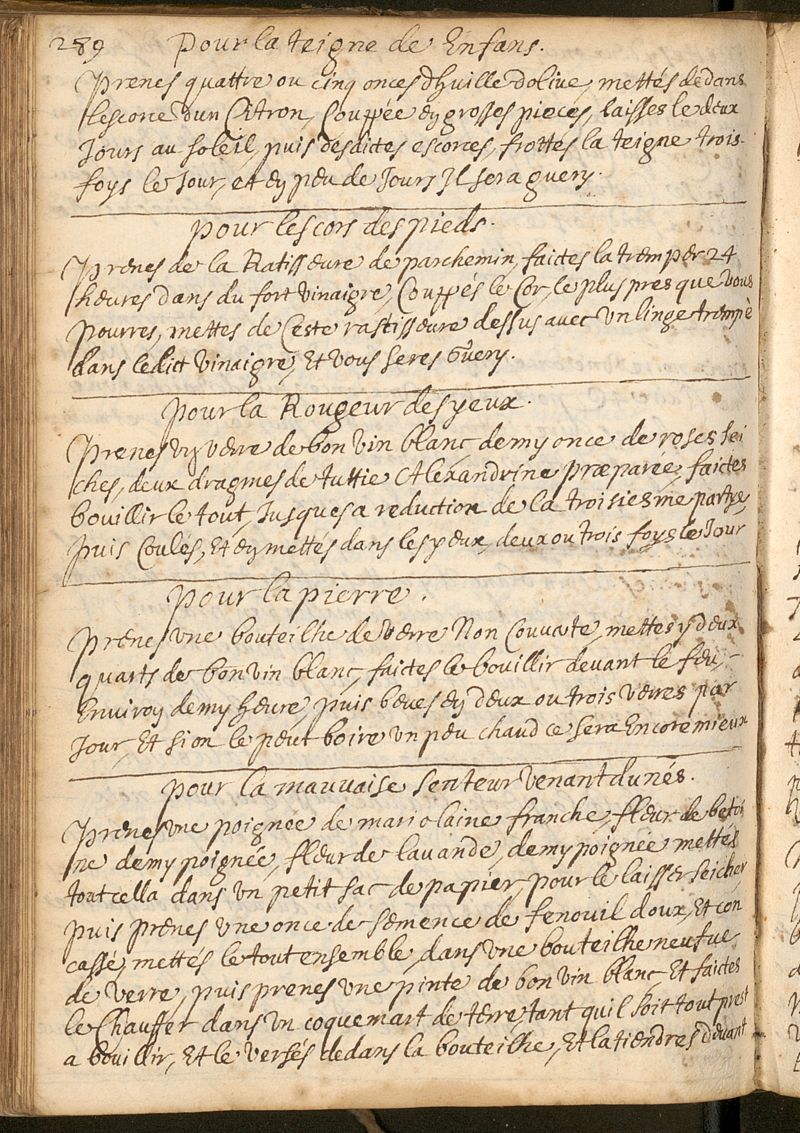 289 Pour la teigne de Enfans.
Prenes quattre ou cinq onces dhuille dolive, mettés dedans
lescorce dun Citron, Couppée ey grosses pieces, laisses le deux
Jours au soleil, puis desdictes escorces, frottes la teigne trois
foys le Jour, et ey peu de Jours Jl sera guery.
pour les cors des pieds.
Prenes de la Ratisseure de parchemin, faictes la tremper 24
heures dans du fort vinaigre, Couppés le Cor, le plus pres que vous
pourres, mettes de Ceste rastisseure dessus avec un linge trempè
dans ledict vinaigre, Et vous seres Guery.
pour la Rougeur des yeux.
Prenes vy verre de bon vin blanc, demy once de roses sei
ches, deux dragmes de tuttie Alexandrine præparée, faictes
bouillir le tout, Jusques a reduction de la troisiesme partye,
puis Coulés, Et ey mettes dans les yeux, deux ou trois foys le Jour
pour la pierre.
Prenes vne bouteilhe de verre Non Couverte, mettes y deux
quarts de bon vin blanc, faictes le bouillir devant le feu,
Enviroy demy heure, puis beves ey deux ou trois verres par
Jour, Et si on le peut boire vn peu chaud ce sera Encore mieux
pour la mauvaise senteur venant du nés.
Prenes vne poignee de mariolaine franche, fleur de betoi
ne demy poignée, fleur de lavande, demy poignée mettés
tout cella dans vn petit sac de papier, pour le laisser seicher
puis prenes vne once de semence de fenouil doux, Et con
cassé, mettés le tout ensemble, dans vne bouteilhe neufue
de verre, puis prenes vne pinte de bon vin blanc Et faictes
le Chauffer dans vn coquemart de terre, tant quil soit tout prest
a bouillir, Et le versés dedans la bouteilhe, Et la tiendres devant